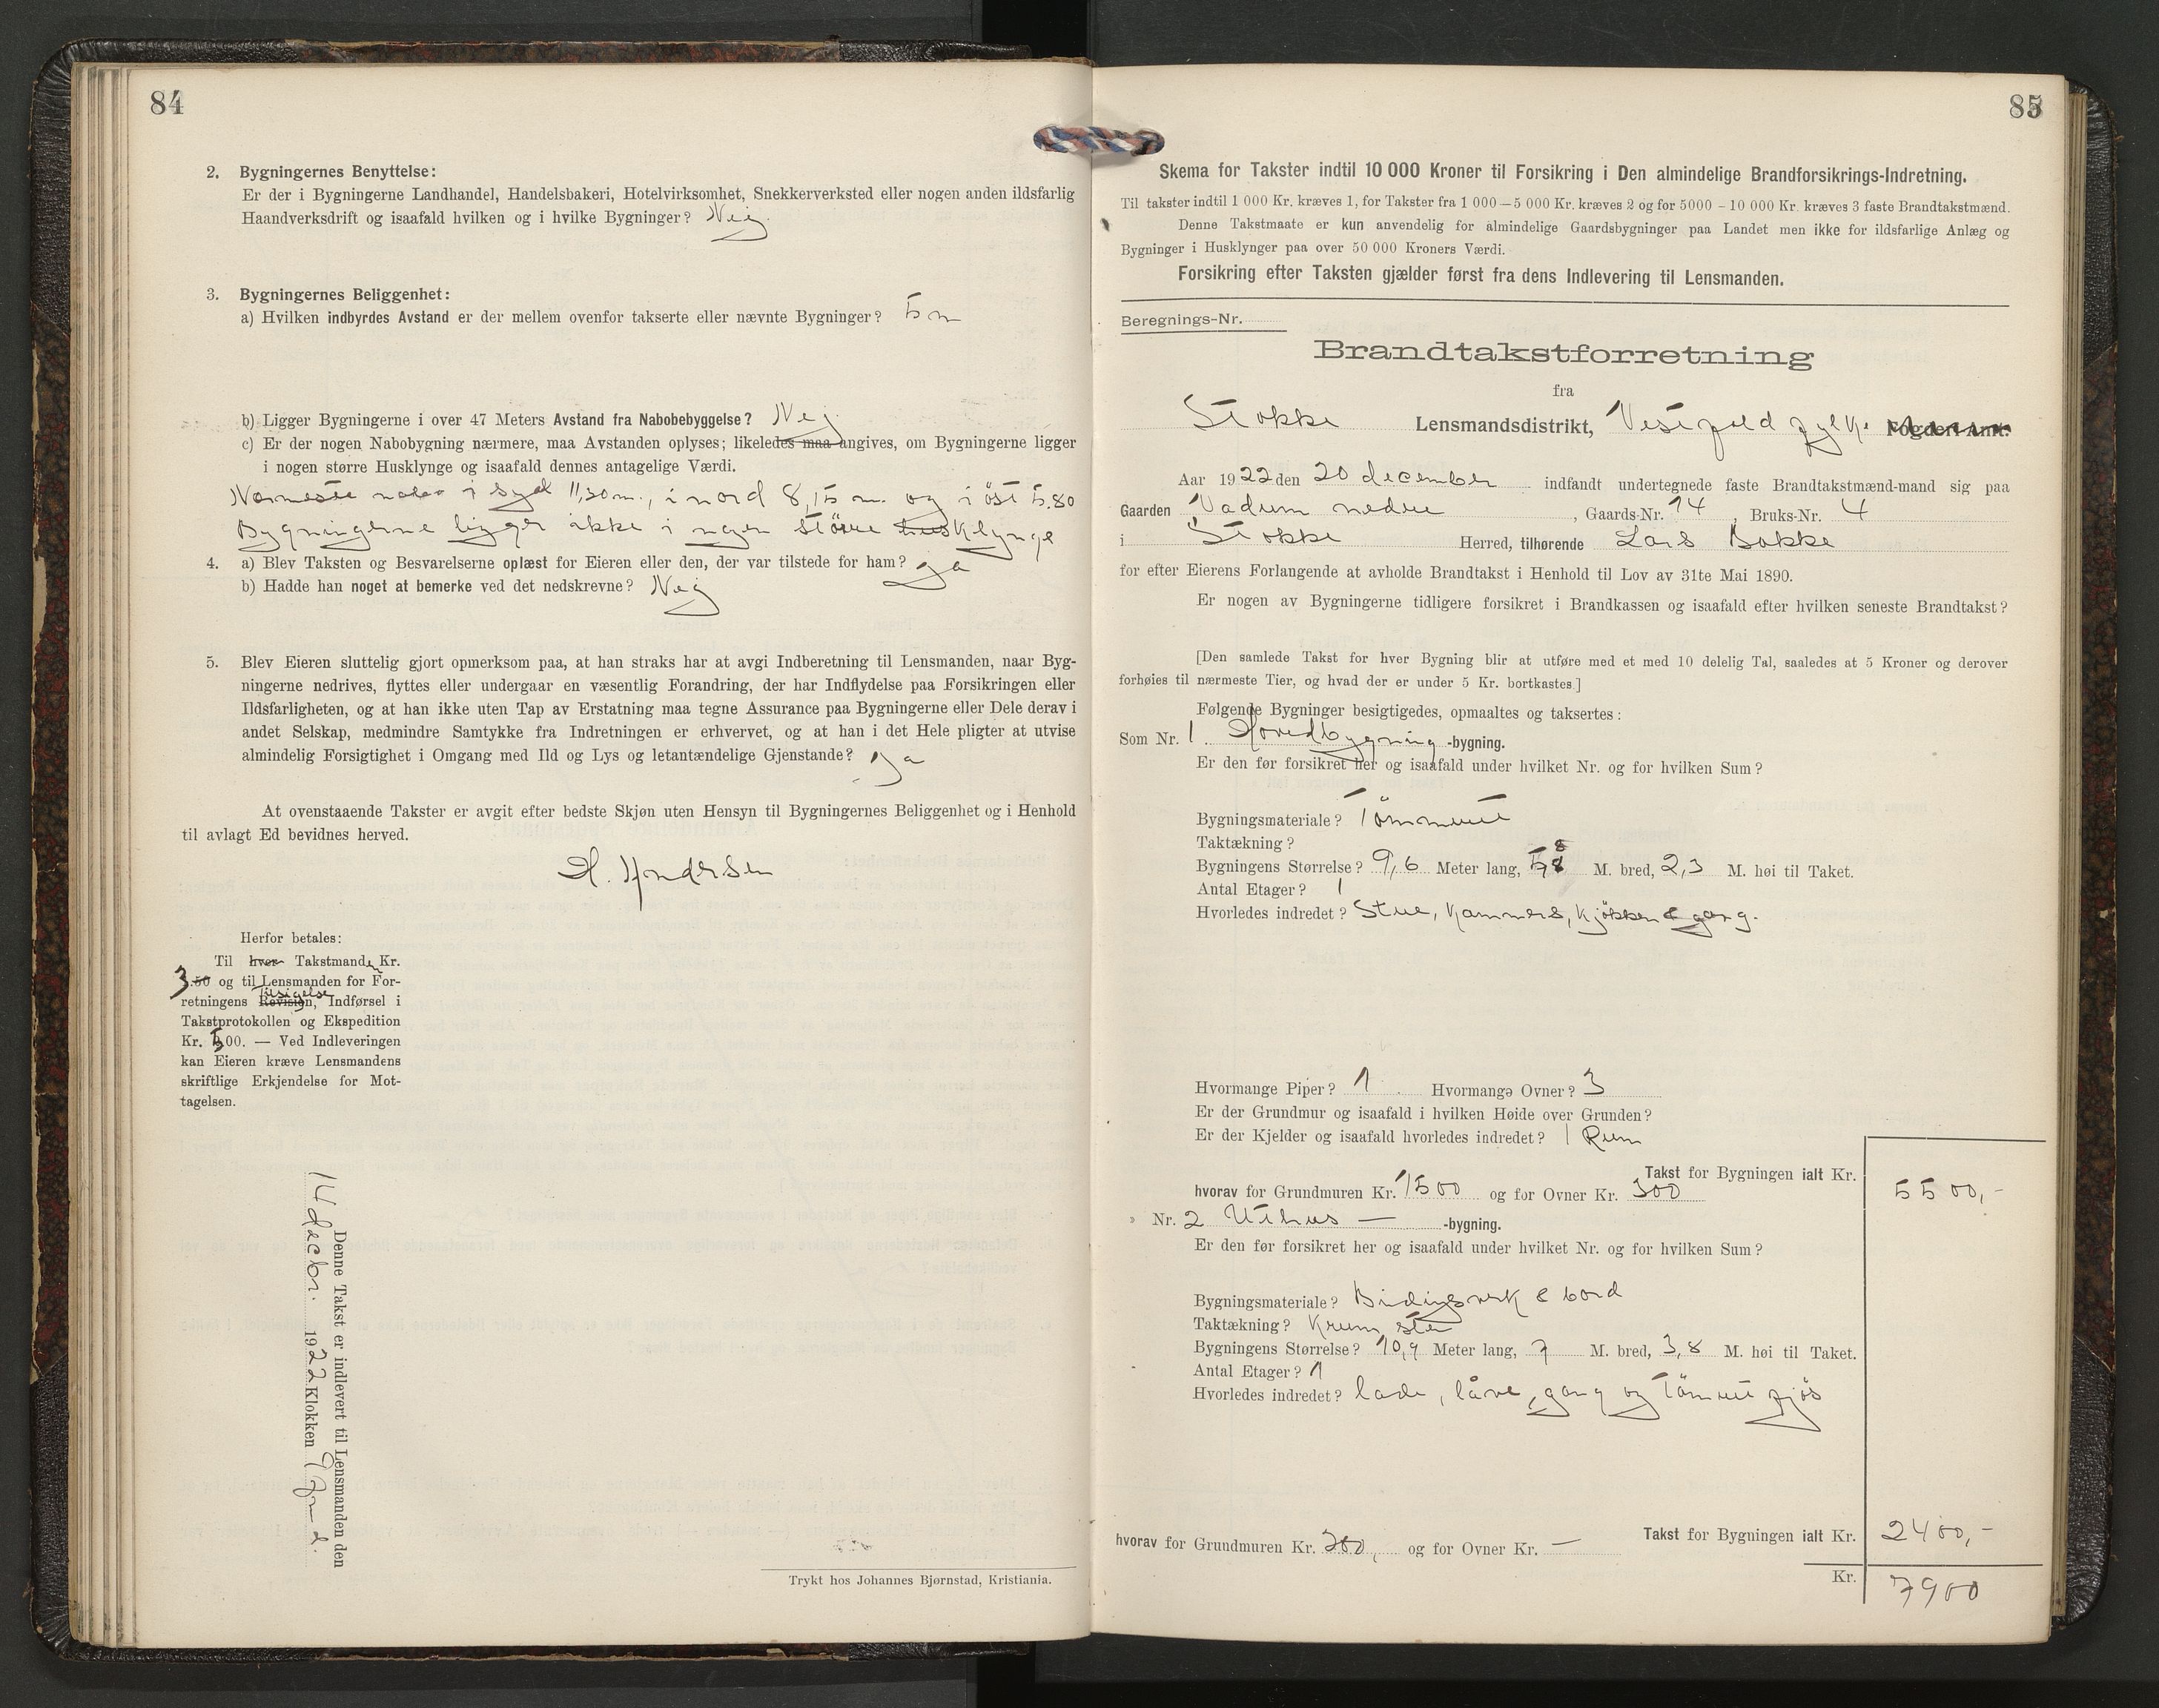 84
2. Bygningernes Benyttelse:
Er der i Bygningerne Landhandel, Handelsbakeri, Hotelvirksomhet, Snekkerverksted eller nogen anden ildsfarlig
Haandverksdrift og isaafald hvilken og i hvilke Bygninger? Nej.
3. Bygningernes Beliggenhet:
a) Hvilken indbyrdes Avstand er der mellem ovenfor takserte eller nævnte Bygninger? 5 m
b) Ligger Bygningerne i over 47 Meters Avstand fra Nabobebyggelse? Nej.
c) Er der nogen Nabobygning nærmere, maa Avstanden oplyses; likeledes maa angives, om Bygningerne ligger
i nogen større Husklynge og isaafald dennes antagelige Værdi.
Nærmeste nabo i syd 11,30 m., i nord 8,15 m. og i öst 5.80
Bygningerne ligger ikke i nogen större husklynge
4. a) Blev Taksten og Besvarelserne oplæst for Eieren eller den, der var tilstede for ham? ja
b) Hadde han noget at bemerke ved det nedskrevne? Nej
5. Blev Eieren sluttelig gjort opmerksom paa, at han straks har at avgi Indberetning til Lensmanden, naar Byg-
ningerne nedrives, flyttes eller undergaar en væsentlig Forandring, der har Indflydelse paa Forsikringen eller
Ildsfarligheten, og at han ikke uten Tap av Erstatning maa tegne Assurance paa Bygningerne eller Dele derav i
andet Selskap, medmindre Samtykke fra Indretningen er erhvervet, og at han i det Hele pligter at utvise
almindelig Forsigtighet i Omgang med Ild og Lys og letantændelige Gjenstande? ja
At ovenstaaende Takster er avgit efter bedste Skjøn uten Hensyn til Bygningernes Beliggenhet og i Henhold
til avlagt Ed bevidnes herved.
H. Andersen
Herfor betales:
Til hver Takstmanden Kr.
3.50 og til Lensmanden for For-
retningens Revision, Tilsigelse Indførsel i
Takstprotokollen og Ekspedition
Kr. 5.00. — Ved Indleveringen
kan Eieren kræve Lensmandens
skriftlige Erkjendelse for Mot-
tagelsen.
Denne Takst er indlevert til Lensmanden den
14 decbr. 1922 Klokken 9 fmd.
Trykt hos Johannes Bjørnstad, Kristiania.
85
Skema for Takster indtil 10 000 Kroner til Forsikring i Den almindelige Brandforsikrings-Indretning.
Til takster indtil 1 000 Kr. kræves 1, for Takster fra 1 000—5 000 Kr. kræves 2 og for 5000 – 10 000 Kr. kræves 3 faste Brandtakstmænd.
Denne Takstmaate er kun anvendelig for almindelige Gaardsbygninger paa Landet men ikke for ildsfarlige Anlæg og
Bygninger i Husklynger paa over 50 000 Kroners Værdi.
Forsikring efter Taksten gjælder først fra dens Indlevering til Lensmanden.
Beregnings-Nr.
Brandtakstforretning
fra
Stokke Lensmandsdistrikt, Vestfold fylke Fogderi Amt.
Aar 1922 den 20 december indfandt undertegnede faste Brandtakstmænd-mand sig paa
Gaarden Vadum nedre, Gaards-Nr. 14, Bruks-Nr. 4
i Stokke Herred, tilhørende Lars Bakke
for efter Eierens Forlangende at avholde Brandtakst i Henhold til Lov av 31te Mai 1890.
Er nogen av Bygningerne tidligere forsikret i Brandkassen og isaafald efter hvilken seneste Brandtakst?
[Den samlede Takst for hver Bygning blir at utføre med et med 10 delelig Tal, saaledes at 5 Kroner og derover
forhøies til nærmeste Tier, og hvad der er under 5 Kr. bortkastes.]
Følgende Bygninger besigtigedes, opmaaltes og taksertes:
Som Nr. 1. Hovedbygning -bygning.
Er den før forsikret her og isaafald under hvilket Nr. og for hvilken Sum?
Bygningsmateriale? Tömmeret
Taktækning?
Bygningens Størrelse? 9,6 Meter lang, 5,8 M. bred, 2,3 M. høi til Taket.
Antal Etager? 1
Hvorledes indredet? Stue, Kammers, Kjökken & gang.
Hvormange Piper? 1. Hvormange Ovner? 3
Er der Grundmur og isaafald i hvilken Høide over Grunden?
Er der Kjelder og isaafald hvorledes indredet? 1 Rum
Takst for Bygningen ialt Kr. 5500,-
hvorav for Grundmuren Kr. 1500 og for Ovner Kr. 300
» Nr. 2 Uthus — -bygning.
Er den før forsikret her og isaafald under hvilket Nr. og for hvilken Sum?
Bygningsmateriale? Bindingsverk & bord
Taktækning? Krum sten
Bygningens Størrelse? 10,9 Meter lang, 7 M. bred, 3,8 M. høi til Taket.
Antal Etager? 1
Hvorledes indredet? lade, låve, gang og tömret fjös
Takst for Bygningen ialt Kr. 2400,-
hvorav for Grundmuren Kr. 200, og for Ovner Kr. —
Kr. 7900